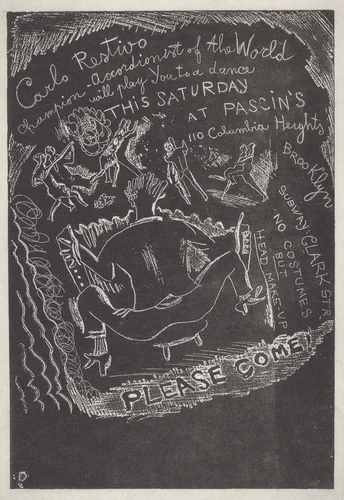 Carlo Restivo
champion-accordionist of the World
will play you to a dance
THIS SATURDAY
AT PASCIN'S
110 Columbia Heights
BROOKLYN
SUBWAY: CLARK STR.
NO COSTUMES
BUT
HEAD MAKE UP
PLEASE COME!